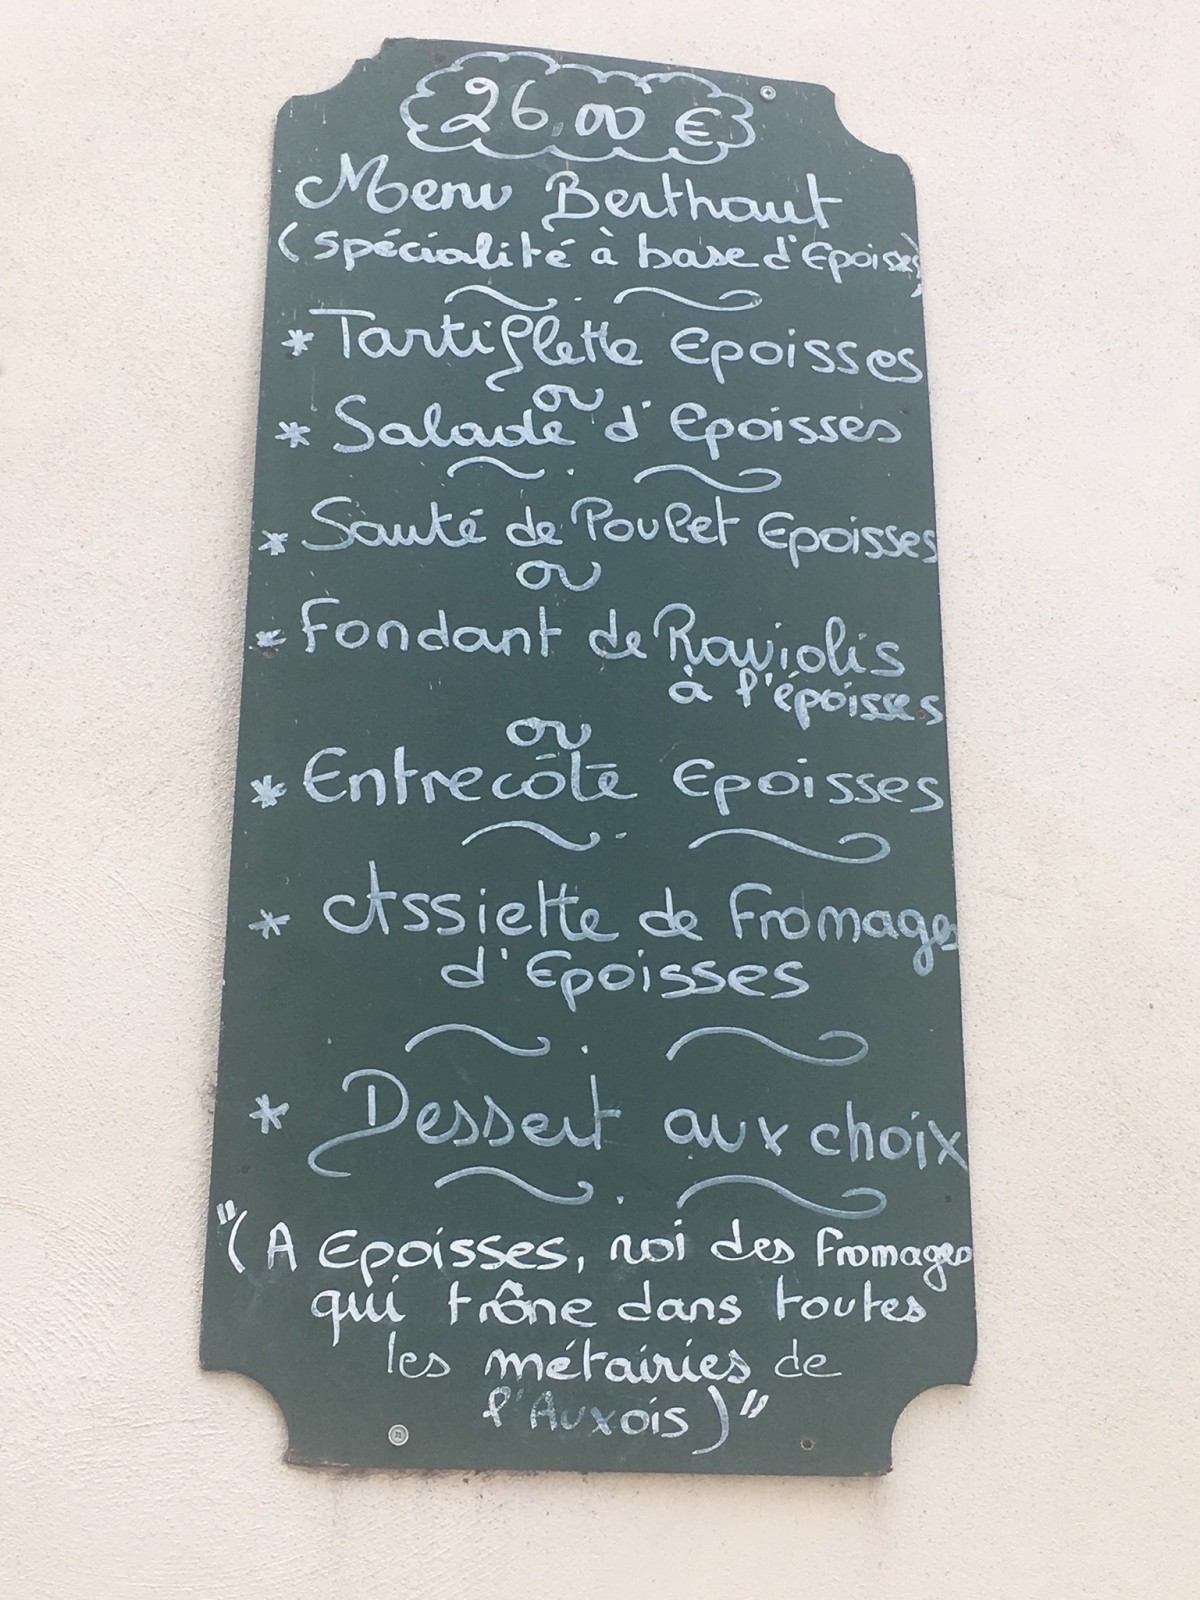 26.00 €
Menu Berthaut
(spécialité à base d'Epoisses)
* Tartiflette Epoisses
ou
* Salade d'Epoisses
* Sauté de Poulet Epoisses
ou
* Fondant de Raviolis
à l'époisses
ou
* Entrecôte Epoisses
* Assiette de Fromages
d'Epoisses
* Dessert aux choix
"(A Epoisses, roi des fromages
qui trône dans toutes
les métairies de
l'Auxois)"